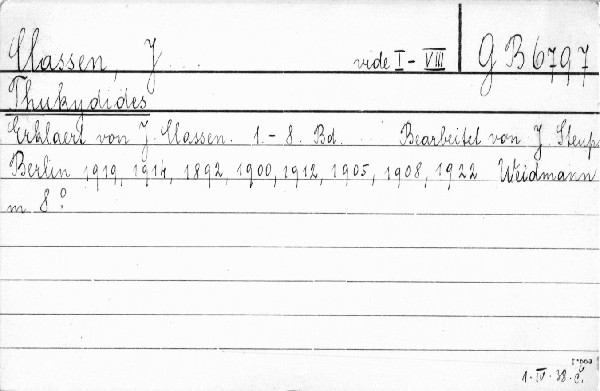 Classen, J. ... vide I - VIII GB 6797
Thukydides
Erklaert von J. Classen. 1.- 8. Bd. Bearbeitet von J Steup.
Berlin 1919, 1914, 1892, 1900, 1912, 1905, 1908, 1922 Weidmann
m 8°
1·IV·38·